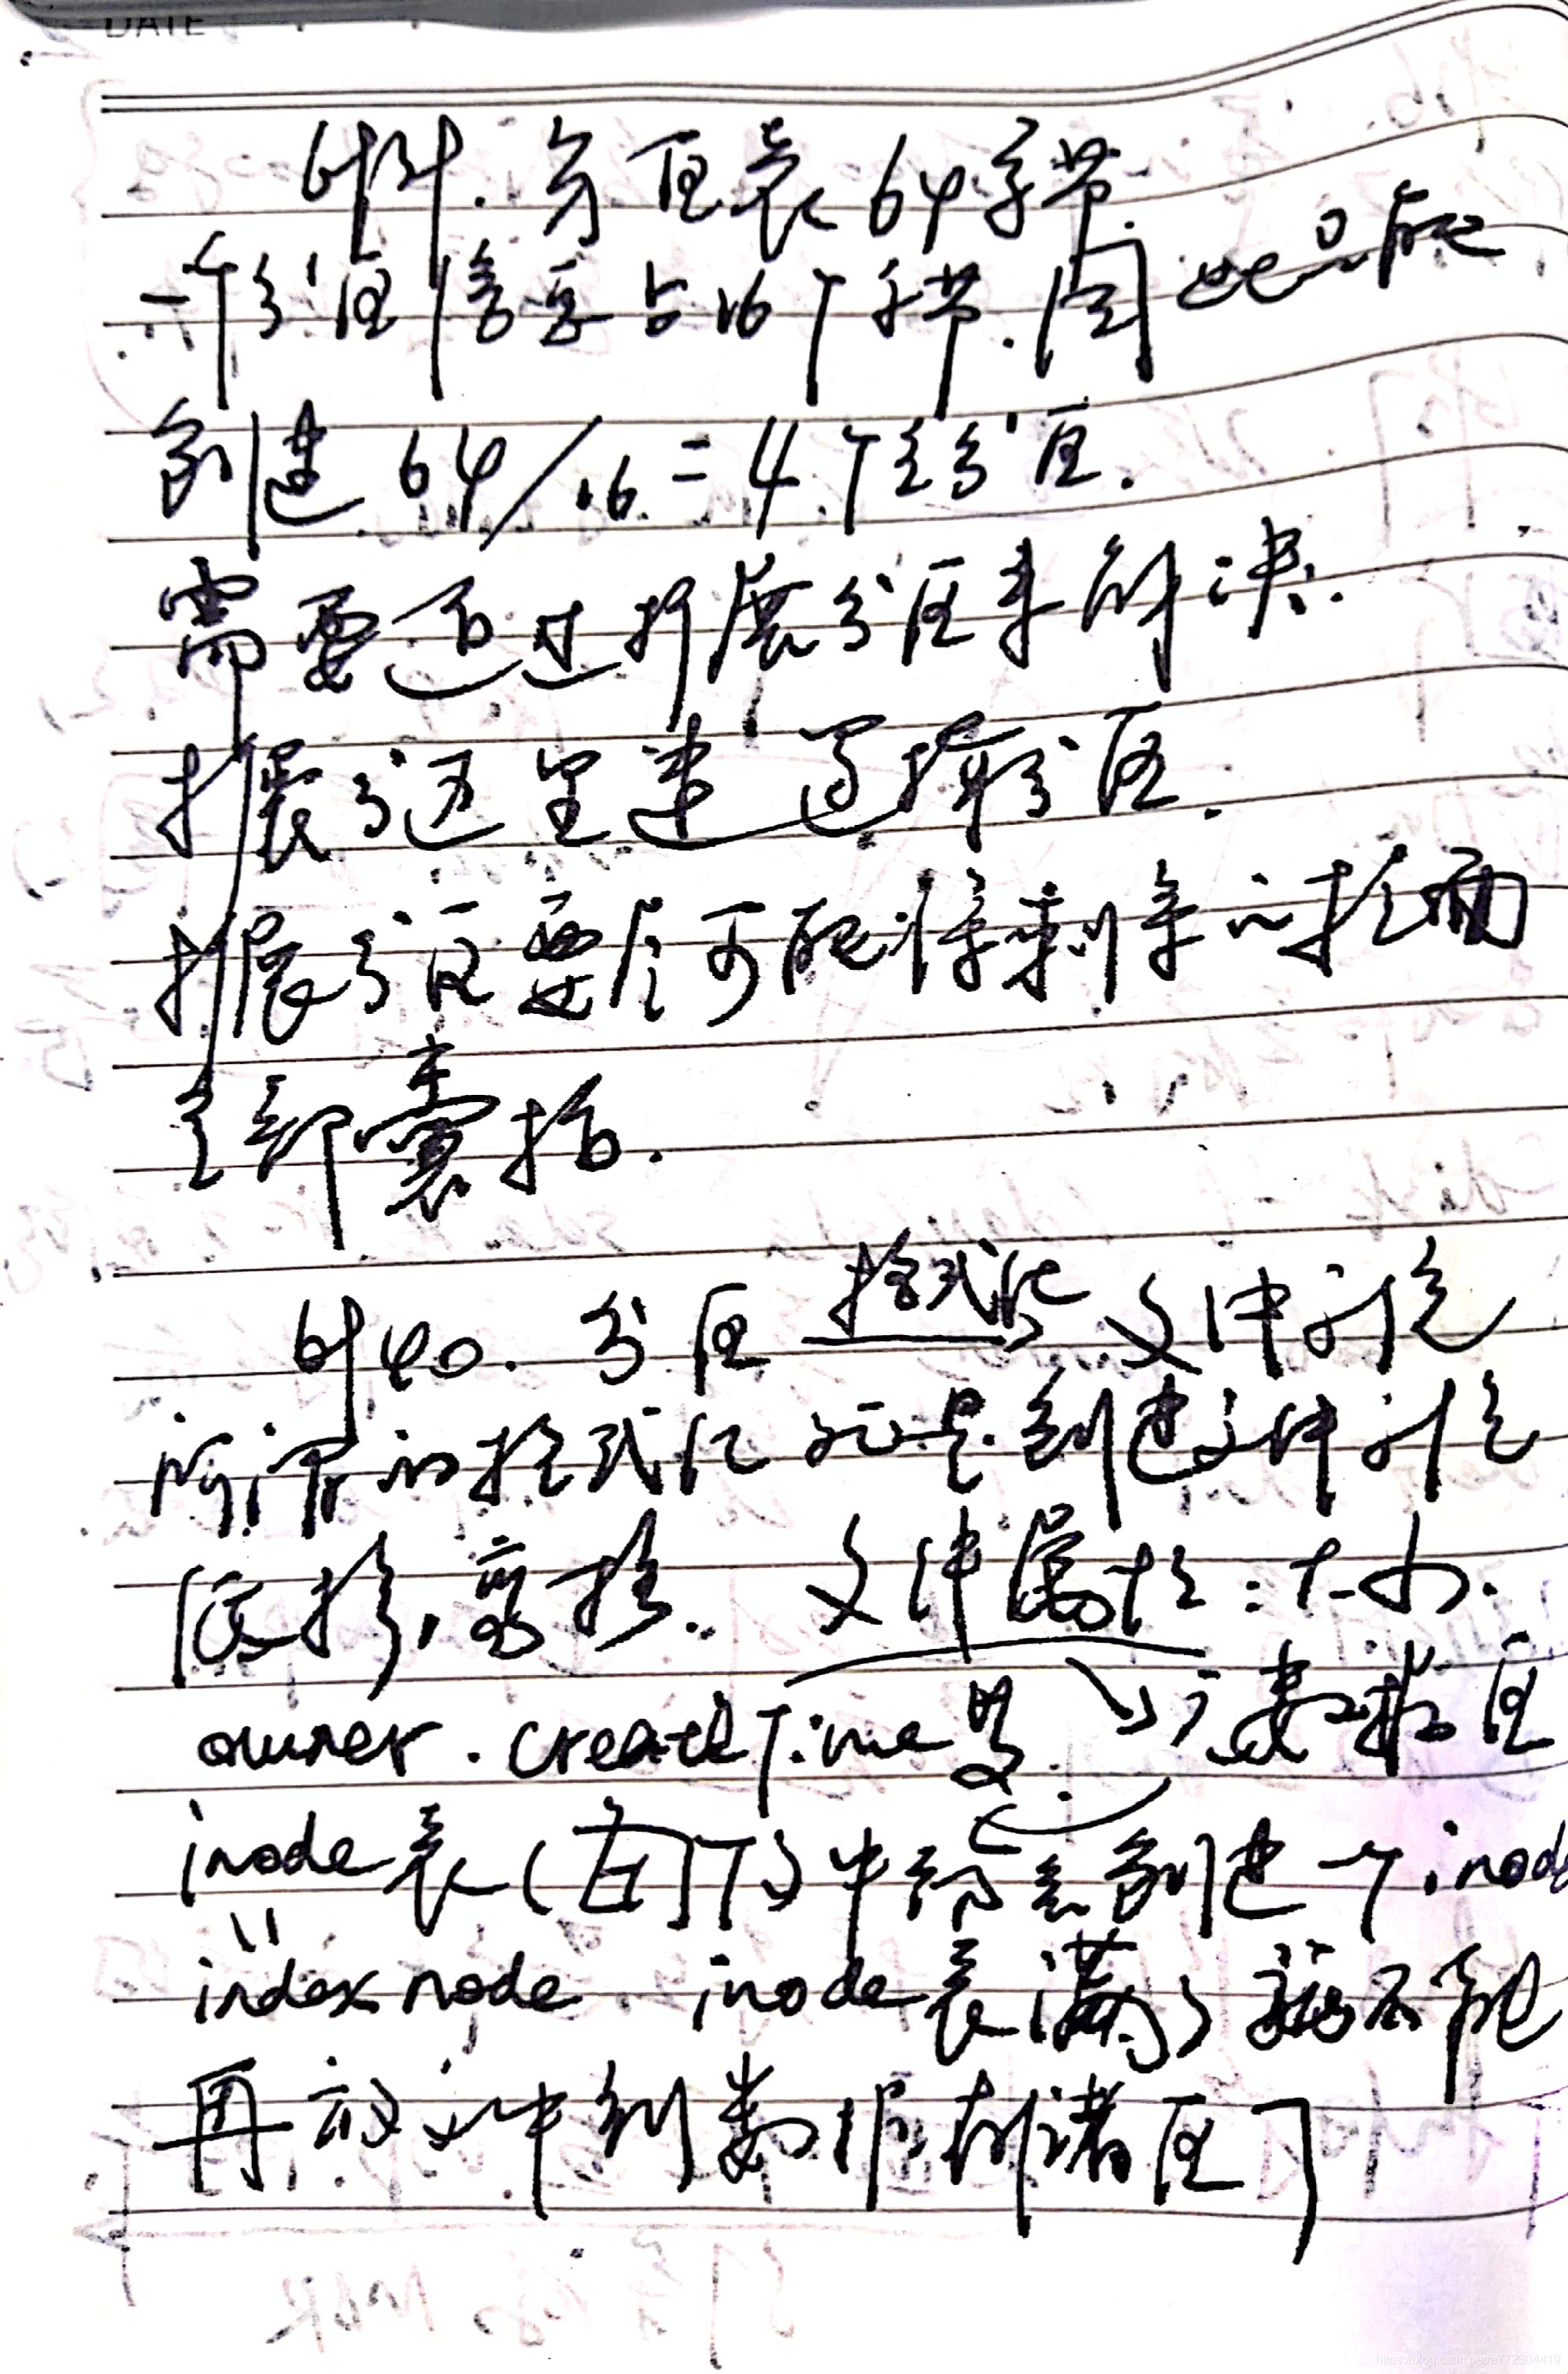 DATE
分区表64字节.
一个分区信息占16个字节.因此只能
创建64/16=4个主分区.
需要通过扩展分区来解决.
扩展分区里建逻辑分区.
扩展分区要尽可能将剩余的柱面
全部囊括.
P40.分区 格式化 文件系统
所谓的格式化就是创建文件系统
低格,高格. 文件属性:大小.
owner.createTime 元数据区
inode表(有限)中给它创建一个inode
index node inode表满了就不能
再放文件到数据存储区了
https://blog.csdn.net/a772304419